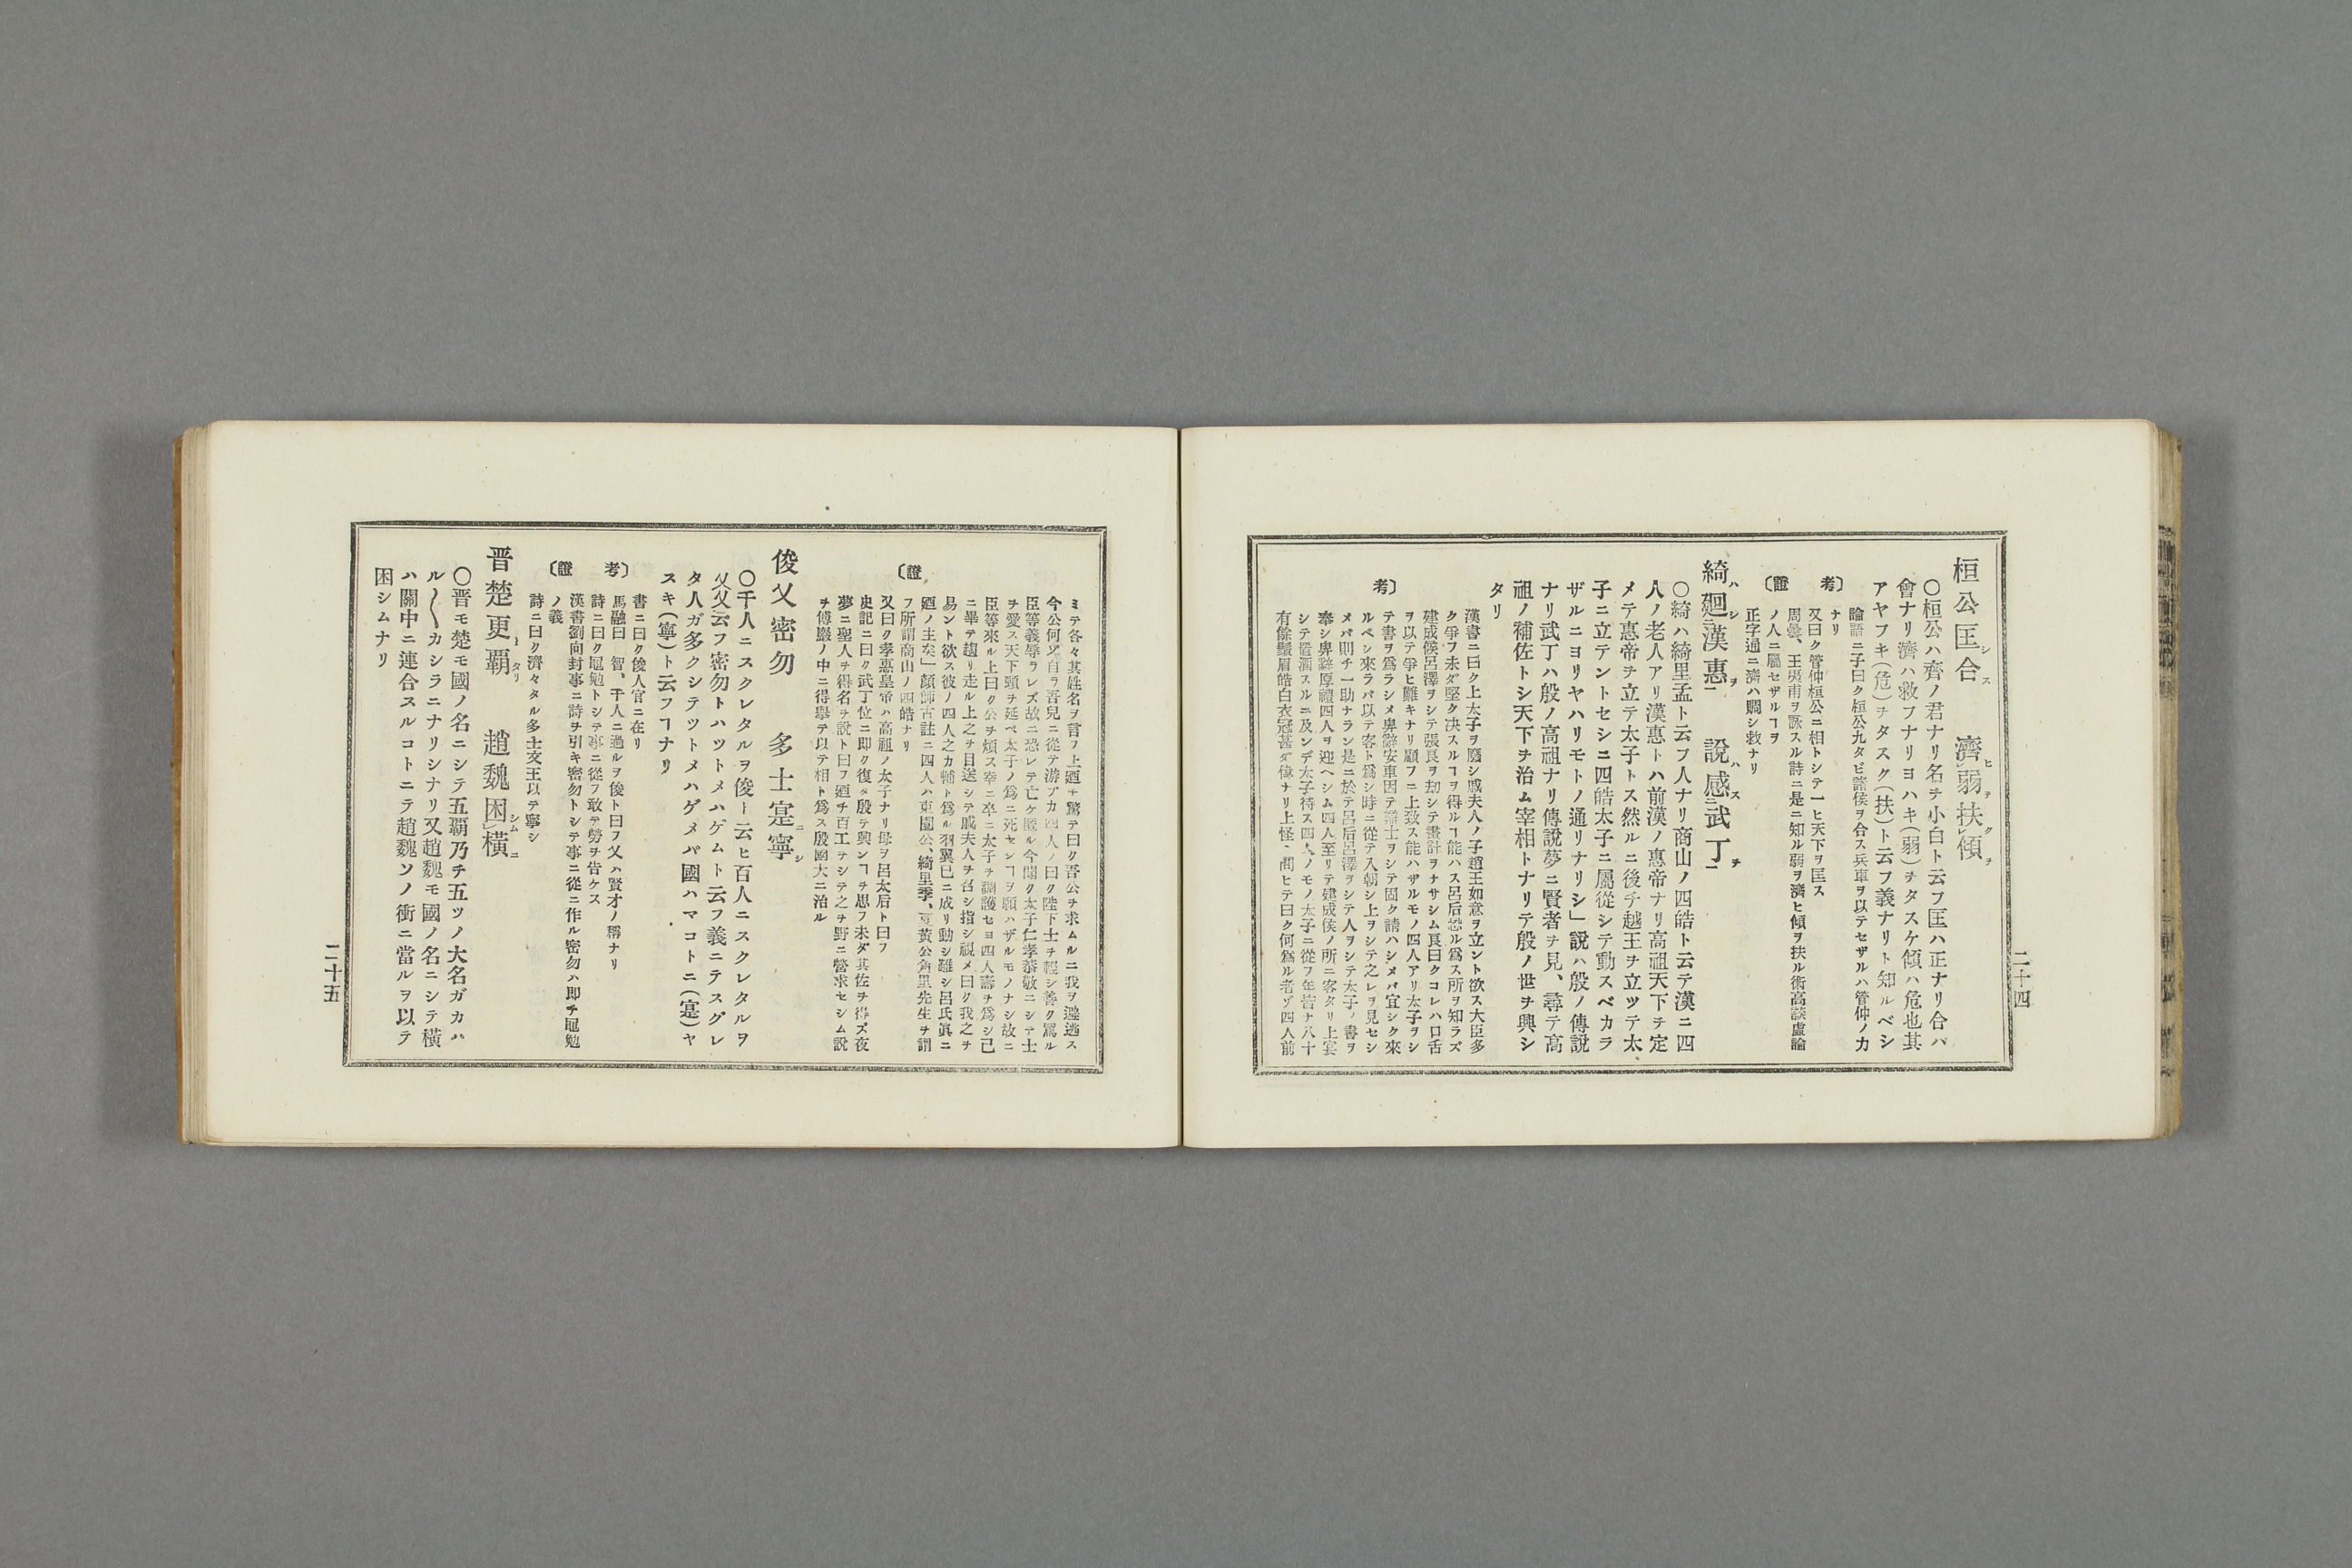 桓公匡合　濟弱扶傾
〇桓公ハ齊ノ君ナリ名ヲ小白ト云フ匡ハ正ナリ合ハ
會ナリ濟ハ救フナリヨハキ(弱)ヲタスケ傾ハ危也其
アヤフキ(危)ヲタスク(扶)ト云フ義ナリト知ルベシ
論語ニ子曰ク桓公九タビ諸侯ヲ合ス兵車ヲ以テセザルハ管仲ノ力
ナリ
〔考 又曰ク管仲桓公ニ相トシテ一ヒ天下ヲ匡ス
周曇、王夷甫ヲ詠スル詩ニ是ニ知ル弱ヲ濟ヒ傾ヲ扶ル術高談虛論
證〕 ノ人ニ屬セザルヿヲ
正字通ニ濟ハ賙シ救ナリ
綺廻漢惠　說感武丁
〇綺ハ綺里孟ト云フ人ナリ商山ノ四皓ト云テ漢ニ四
人ノ老人アリ漢惠トハ前漢ノ惠帝ナリ高祖天下ヲ定
メテ惠帝ヲ立テ太子トス然ルニ後チ越王ヲ立ツテ太
子ニ立テントセシニ四皓太子ニ屬從シテ動スベカラ
ザルニヨリヤハリモトノ通リナリシ」說ハ殷ノ傅說
ナリ武丁ハ殷ノ高祖ナリ傅說夢ニ賢者ヲ見、尋テ高
祖ノ補佐トシ天下ヲ治ム宰相トナリテ殷ノ世ヲ興シ
タリ
漢書ニ曰ク上太子ヲ廢シ戚夫人ノ子趙王如意ヲ立ント欲ス大臣多
ク爭フ未ダ堅ク决スルヿヲ得ルヿ能ハス呂后恐ル爲ス所ヲ知ラズ
建成侯呂澤ヲシテ張良ヲ刧シテ畫計ヲナサシム良曰クコレハ口舌
ヲ以テ爭ヒ難キナリ顧フニ上致ス能ハザルモノ四人アリ太子ヲシ
〔考 テ書ヲ爲ラシメ卑辭安車因テ辯士ヲシテ固ク請ハシメバ宜シク來
ルベシ來ラバ以テ客ト爲シ時ニ從テ入朝シ上ヲシテ之レヲ見セシ
メバ則チ一助ナラン是ニ於テ呂后呂澤ヲシテ人ヲシテ太子ノ書ヲ
奉シ卑辭厚禮四人ヲ迎ヘシム四人至リテ建成侯ノ所ニ客タリ上宴
シテ置酒スルニ及ンデ太子侍ス四人ノモノ太子ニ從フ年皆ナ八十
有餘鬚眉皓白衣冠甚ダ偉ナリ上怪ミ問ヒテ曰ク何爲ル者ゾ四人前
二十四
ミテ各々其姓名ヲ言フ上廼チ驚テ曰ク吾公ヲ求ムルニ我ヲ避逃ス
今公何ゾ自ラ吾兒ニ從テ游ブカ四人ノ曰ク陛下士ヲ輕シ善ク罵ル
臣等義辱ラレズ故ニ恐レテ亡ケ匿ル今聞ク太子仁孝恭敬ニシテ士
ヲ愛ス天下頸ヲ延ベ太子ノ爲ニ死センヿヲ願ハザルモノナシ故ニ
臣等來ル上曰ク公ヲ煩ス幸ニ卒ニ太子ヲ調護セヨ四人壽ヲ爲シ己
ニ畢テ趨リ走ル上之ヲ目送シテ戚夫人ヲ召シ指シ視メ曰ク我之ヲ
易ント欲ス彼ノ四人之カ輔ト爲ル羽翼已ニ成リ動シ難シ呂氏眞ニ
證〕 廼ノ主矣」顏師古註ニ四人ハ東園公、綺里季、夏黃公角里先生ヲ謂
フ所謂商山ノ四皓ナリ
又曰ク孝惠皇帝ハ高祖ノ太子ナリ母ヲ呂太后ト曰フ
史記ニ曰ク武丁位ニ即ク復タ殷テ興ンヿヲ思フ未ダ其佐ヲ得ズ夜
夢ニ聖人ヲ得名ヲ說ト曰フ廼チ百工ヲシテ之ヲ野ニ營求セシム說
ヲ傅巖ノ中ニ得擧テ以テ相ト爲ス殷國大ニ治ル
俊乂密勿　多士寔寧
〇千人ニスクレタルヲ俊ート云ヒ百人ニスクレタルヲ
乂ト云フ密勿トハツトメハゲムト云フ義ニテスグレ
タ人ガ多クシテツトメハゲメバ國ハマコトニ(寔)ヤ
スキ(寧)ト云フヿナリ
書ニ曰ク俊人官ニ在リ
〔考 馬融曰　智、千人ニ過ルヲ俊ト曰フ乂ハ賢才ノ稱ナリ
詩ニ曰ク黽勉トシテ事ニ從フ敢テ勞ヲ告ケス
漢書劉向封事ニ詩ヲ引キ密勿トシテ事ニ從ニ作ル密勿ハ即チ黽勉
證〕 ノ義
詩ニ曰ク濟々タル多士文王以テ寧シ
晋楚更覇　趙魏困橫
〇晋モ楚モ國ノ名ニシテ五覇乃チ五ツノ大名ガカハ
ル〱カシラニナリシナリ又趙魏モ國ノ名ニシテ橫
ハ關中ニ連合スルコトニテ趙魏ソノ衝ニ當ルヲ以テ
困シムナリ
二十五